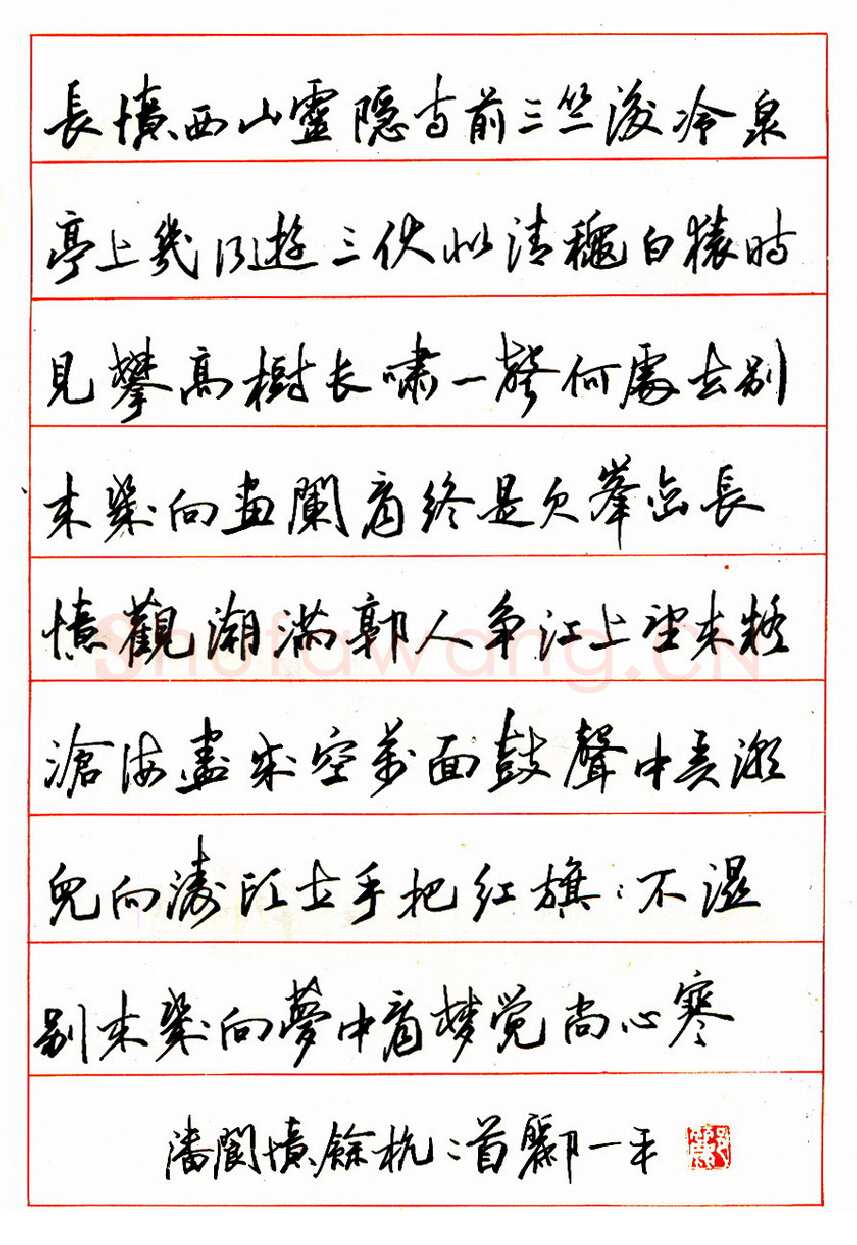 長憶西山靈隱寺前三竺後冷泉
亭上幾曾遊三伏似清穐白猿時
見攀高樹长啸一聲何處去别
来幾向畫闌看終是欠峯巒長
憶觀潮滿郭人争江上望来疑
滄海盡成空萬面鼓聲中弄潮
兒向濤頭立手把红旗:不濕
别来幾向夢中看梦觉尚心寒
潘閬憶餘杭:首酈一平
Shufawang.CN